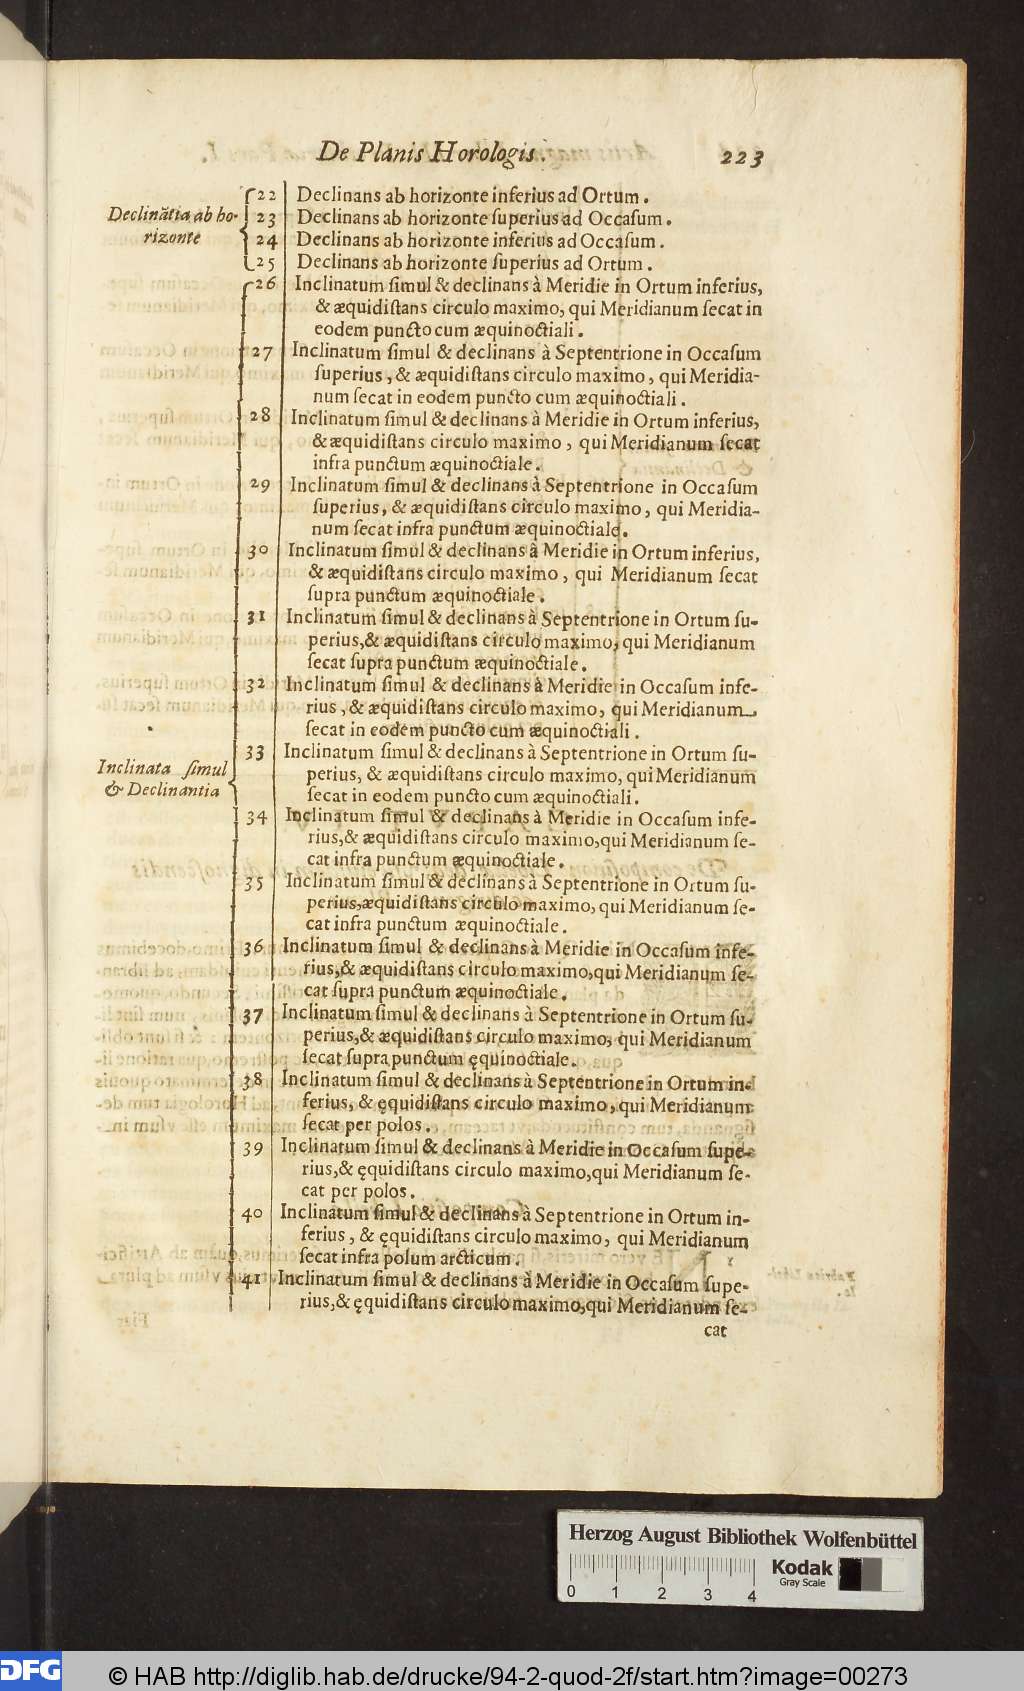 De Planis Horologis. 223
Declinãtia ab ho-
rizonte
22 Declinans ab horizonte inferius ad Ortum.
23 Declinans ab horizonte ſuperius ad Occaſum.
24 Declinans ab horizonte inferius ad Occaſum.
25 Declinans ab horizonte ſuperius ad Ortum.
26 Inclinatum ſimul & declinans à Meridie in Ortum inferius,
& æquidiſtans circulo maximo, qui Meridianum ſecat in
eodem puncto cum æquinoctiali.
27 Inclinatum ſimul & declinans à Septentrione in Occaſum
ſuperius, & æquidiſtans circulo maximo, qui Meridia-
num ſecat in eodem puncto cum æquinoctiali.
28 Inclinatum ſimul & declinans à Meridie in Ortum inferius,
& æquidiſtans circulo maximo, qui Meridianum ſecat
infra punctum æquinoctiale.
29 Inclinatum ſimul & declinans à Septentrione in Occaſum
ſuperius, & æquidiſtans circulo maximo, qui Meridia-
num ſecat infra punctum æquinoctiale.
30 Inclinatum ſimul & declinans à Meridie in Ortum inferius,
& æquidiſtans circulo maximo, qui Meridianum ſecat
ſupra punctum æquinoctiale.
31 Inclinatum ſimul & declinans à Septentrione in Ortum ſu-
perius,& æquidiſtans circulo maximo, qui Meridianum
ſecat ſupra punctum æquinoctiale.
32 Inclinatum ſimul & declinans à Meridie in Occaſum infe-
rius, & æquidiſtans circulo maximo, qui Meridianum
ſecat in eodem puncto cum æquinoctiali.
Inclinata ſimul
& Declinantia
33 Inclinatum ſimul & declinans à Septentrione in Ortum ſu-
perius, & æquidiſtans circulo maximo, qui Meridianum
ſecat in eodem puncto cum æquinoctiali.
34 Inclinatum ſimul & declinans à Meridie in Occaſum infe-
rius,& æquidiſtans circulo maximo,qui Meridianum ſe-
cat infra punctum æquinoctiale.
35 Inclinatum ſimul & declinans à Septentrione in Ortum ſu-
perius,æquidiſtans circulo maximo, qui Meridianum ſe-
cat infra punctum æquinoctiale.
36 Inclinatum ſimul & declinans à Meridie in Occaſum infe-
rius,& æquidiſtans circulo maximo,qui Meridianum ſe-
cat ſupra punctum æquinoctiale.
37 Inclinatum ſimul & declinans à Septentrione in Ortum ſu-
perius,& æquidiſtans circulo maximo, qui Meridianum
ſecat ſupra punctum ęquinoctiale.
38 Inclinatum ſimul & declinans à Septentrione in Ortum in-
ferius, & ęquidiſtans circulo maximo, qui Meridianum
ſecat per polos.
39 Inclinatum ſimul & declinans à Meridie in Occaſum ſupe-
rius,& ęquidiſtans circulo maximo,qui Meridianum ſe-
cat per polos.
40 Inclinatum ſimul & declinans à Septentrione in Ortum in-
ferius, & ęquidiſtans circulo maximo, qui Meridianum
ſecat infra polum arcticum.
41 Inclinatum ſimul & declinans à Meridie in Occaſum ſupe-
rius,& ęquidiſtans circulo maximo,qui Meridianum ſe-
cat
Herzog August Bibliothek Wolfenbüttel
0 1 2 3 4
Kodak
Gray Scale
DFG © HAB http://diglib.hab.de/drucke/94-2-quod-2f/start.htm?image=00273